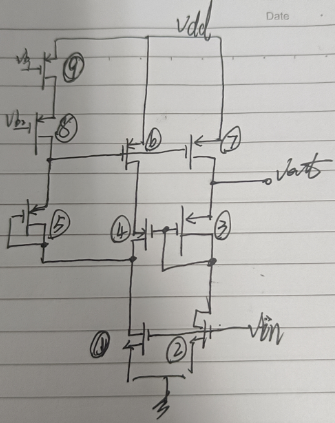 Date
Vdd
Vb1
⑨
Vb2
⑧
⑥
⑦
Vout
⑤
④
③
①
②
Vin